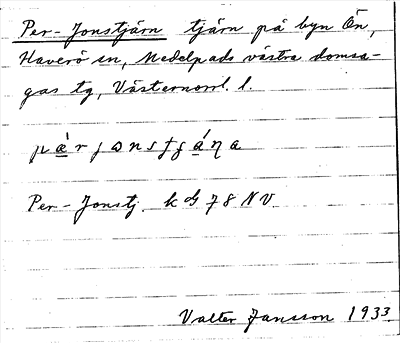 Per-Jonstjärn tjärn på byn Ön,
Haverö sn, Medelpads västra domsa-
gas tg, Västernorrl. l.
Per-Jonstj. k G 78 NV
Valter Jansson 1933